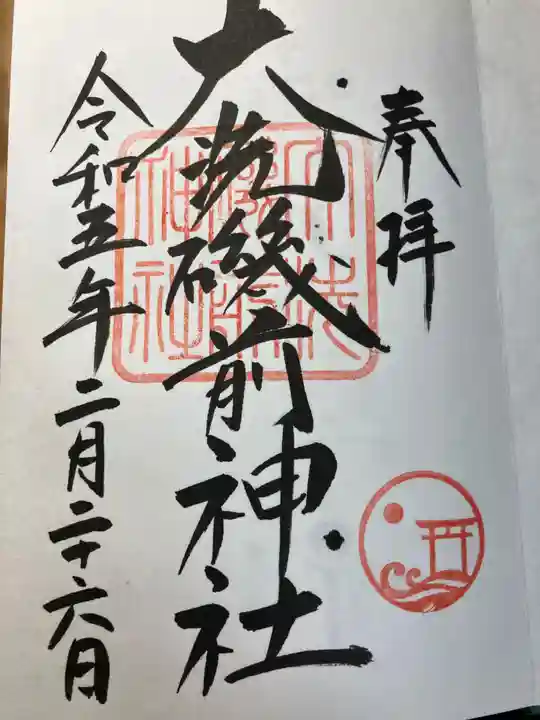 奉拝
大洗磯前神社
令和五年二月二十六日
大洗
磯前
神社